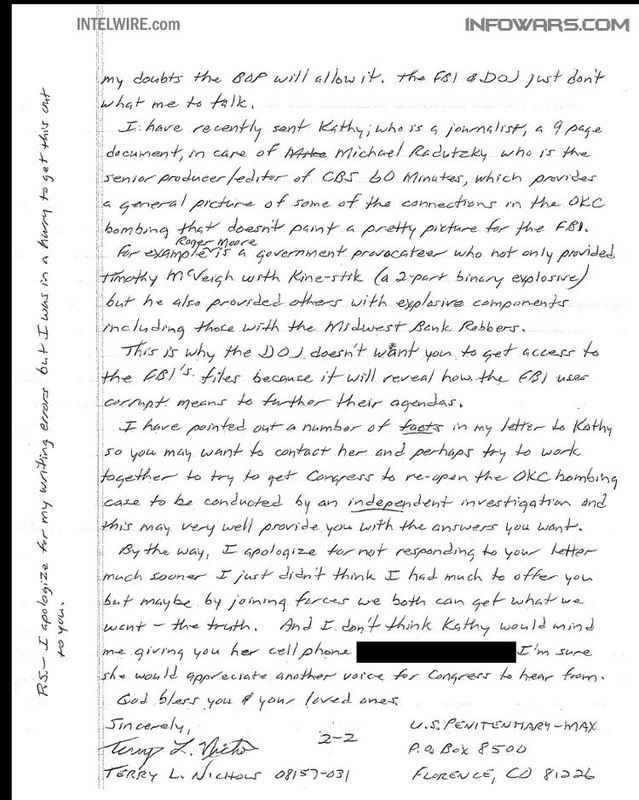 INTELWIRE.com
INFOWARS.COM
my doubts the BOP will allow it. The FBI & DOJ just don't
what me to talk.
I have recently sent Kathy, who is a journalist, a 9 page
document, in care of Mike Michael Radutzky who is the
senior producer/editor of CBS 60 Minutes, which provides
a general picture of some of the connections in the OKC
bombing that doesn't paint a pretty picture for the FBI.
For example Roger Moore is a government provocateer who not only provided
Timothy McVeigh with Kine-stik (a 2-part binary explosive)
but he also provided others with explosive components
including those with the Midwest Bank Robbers.
This is why the DOJ doesn't want you to get access to
the FBI's files because it will reveal how the FBI uses
corrupt means to further their agendas.
I have pointed out a number of facts in my letter to Kathy
so you may want to contact her and perhaps try to work
together to try to get Congress to re-open the OKC bombing
case to be conducted by an independent investigation and
this may very well provide you with the answers you want.
By the way, I apologize for not responding to your letter
much sooner I just didn't think I had much to offer you
but maybe by joining forces we both can get what we
want – the truth. And I don't think Kathy would mind
me giving you her cell phone I'm sure
she would appreciate another voice for Congress to hear from.
God bless you & your loved ones
Sincerely,
Terry L. Nichols
TERRY L. NICHOLS 08157-031
2-2
U.S. PENITENTIARY-MAX
P.O. BOX 8500
FLORENCE, CO 81226
P.S. – I apologize for my writing errors but I was in a hurry to get this out
to you.